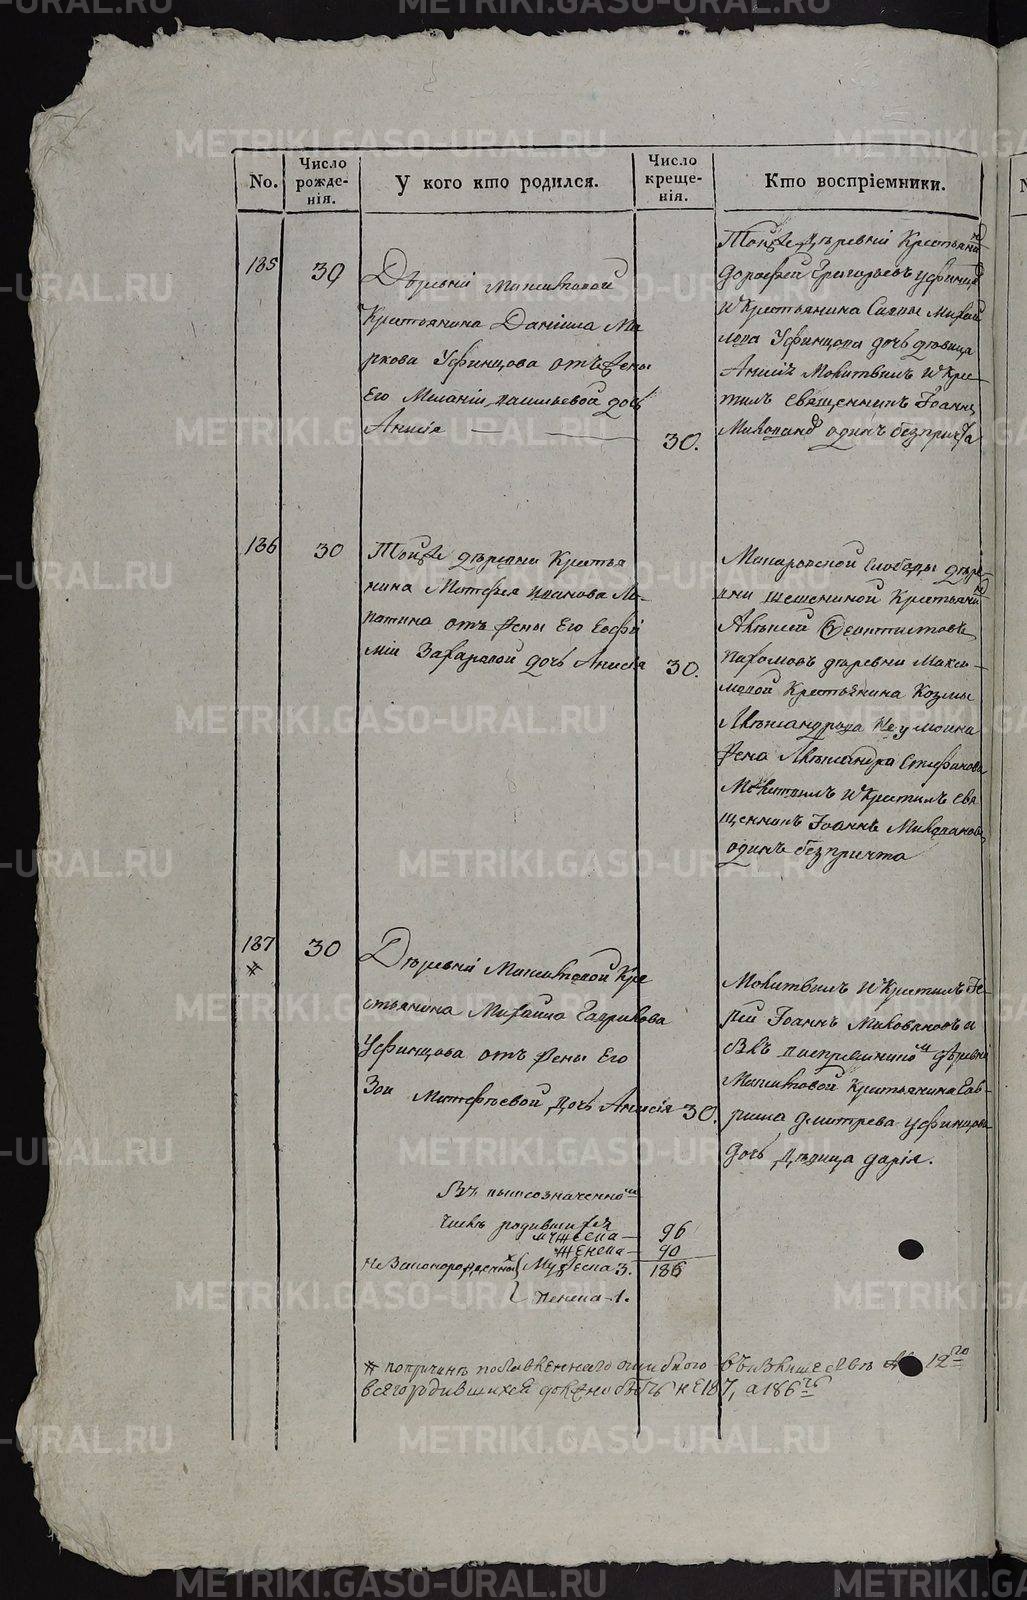 METRIKI.GASO-URAL.RU
No.
Число рожде-нія.
У кого кто родился.
Число креще-нія.
Кто воспріемники.
185
30
Деревни Максимовой
Крестьянина Данiила Ма
ркова Уфинцова отъ жены
Его Меланiи Васильевой дочь
Анисiя
30.
Тойже деревни Крестьянинъ
Дорофей Григорьевъ Уфинцовъ
и Крестьянина Саввы Михай
лова Уфинцова дочь девица
Молитвилъ и Кре-
стилъ Священникъ Iоаннъ
одинъ безъ причта
186
30
Тойже деревни Крестья
нина Матфея Иванова Ло-
патина отъ жены Его Евфи
мiи Захаровой дочь Анисiя
30.
Макаровской Слободы дере-
вни Крестьянинъ
Алексей
Пахомовъ деревни Макси-
мовой Крестьянина Козмы
Александрова Неумоина
жена Александра Стефанова
Молитвилъ и Крестилъ Свя
щенникъ Iоаннъ
одинъ безъ причта
187
30
Деревни Максимовой Кре
стьянина Михаила Гаврилова
Уфинцова отъ жены Его
Зои Матфеевой дочь Анисiя
30.
Молитвилъ и Крестилъ Iе-
рей Iоаннъ
деревни
Максимовой Крестьянина Гав-
рила Дмитрева Уфинцова
дочь девица Дарiя.
Въ вышеозначенномъ
числе родившихся
мужеска — 96
женска — 90
186
Незаконорожденныхъ { Мужеска 3.
{ женска 1.
# по причине поставленнаго ошибкою 12го
всего родившихся должно быть не 187, а 186